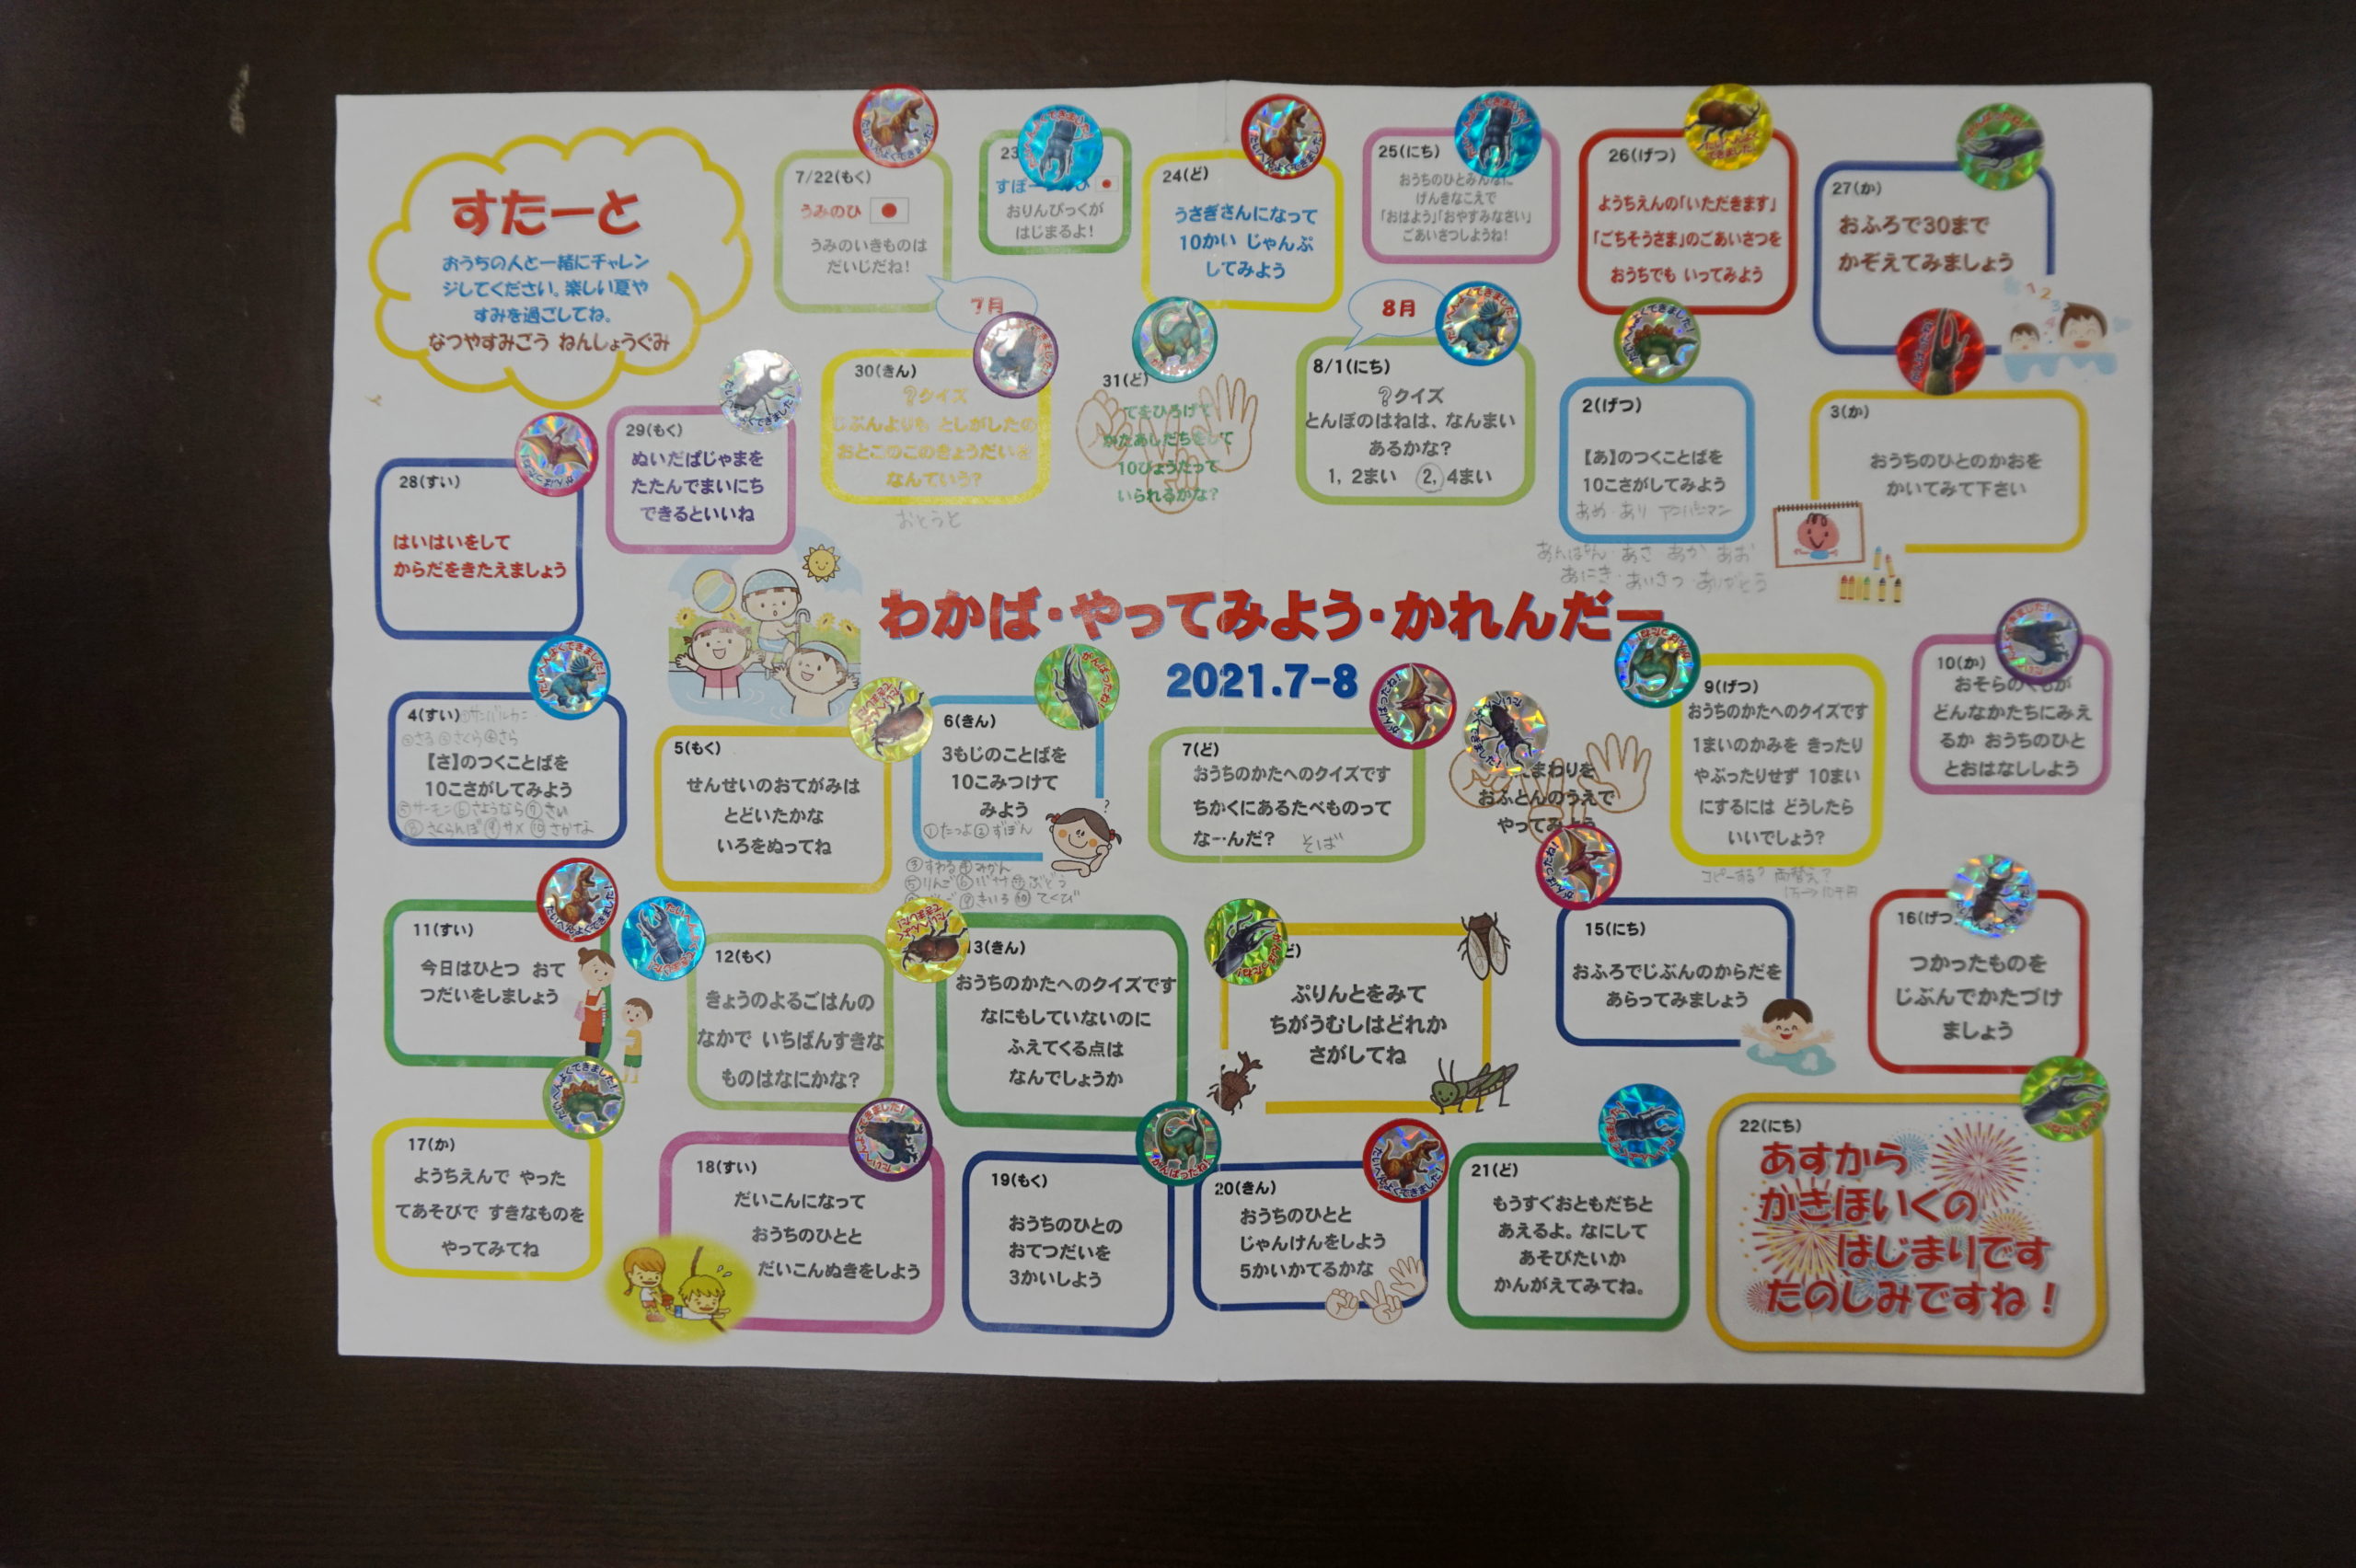 すたーと
おうちの人と一緒にチャレン
ジしてください。楽しい夏や
すみを過ごしてね。
なつやすみごう ねんしょうぐみ
7/22(もく)
うみのひ
うみのいきものは
だいじだね!
7月
23
おりんぴっくが
はじまるよ!
24(ど)
うさぎさんになって
10かい じゃんぷ
してみよう
25(にち)
おうちのひとみんなに
げんきなこえで
「おはよう」「おやすみなさい」
ごあいさつしようね!
26(げつ)
ようちえんの「いただきます」
「ごちそうさま」のごあいさつを
おうちでも いってみよう
27(か)
おふろで30まで
かぞえてみましょう
28(すい)
はいはいをして
からだをきたえましょう
29(もく)
ぬいだぱじゃまを
たたんでまいにち
できるといいね
30(きん)
?クイズ
じぶんよりも としがしたの
おとこのこのきょうだいを
なんていう?
おとうと
31(ど)
てをひろげて
かたあしだちをして
10びょうたって
いられるかな?
8月
8/1(にち)
?クイズ
とんぼのはねは、なんまい
あるかな?
1, 2まい 2, 4まい
2(げつ)
【あ】のつくことばを
10こさがしてみよう
あめ・あり アンパンマン
あさ あか あお
あにき・あいさつ・ありがとう
3(か)
おうちのひとのかおを
かいてみて下さい
わかば・やってみよう・かれんだー
2021.7-8
4(すい) ①サンバルカン
②さる ③さくら ④さら
【さ】のつくことばを
10こさがしてみよう
⑤サーモン ⑥さようなら ⑦さい
⑧さくらんぼ ⑨サメ ⑩さかな
5(もく)
せんせいのおてがみは
とどいたかな
いろをぬってね
6(きん)
3もじのことばを
10こみつけて
みよう
②ずぼん
③すわる ④みかん
⑤りんご ⑥バナナ ⑦ぶどう
⑨きいろ ⑩てくび
7(ど)
おうちのかたへのクイズです
ちかくにあるたべものって
な…んだ? そば
まわりを
おふとんのうえで
やってみよう
9(げつ)
おうちのかたへのクイズです
1まいのかみを きったり
やぶったりせず 10まい
にするには どうしたら
いいでしょう?
コピーする? 両替え?
10(か)
おそらのくもが
どんなかたちにみえ
るか おうちのひと
とおはなししよう
11(すい)
今日はひとつ おて
つだいをしましょう
12(もく)
きょうのよるごはんの
なかで いちばんすきな
ものはなにかな?
13(きん)
おうちのかたへのクイズです
なにもしていないのに
ふえてくる点は
なんでしょうか
ど)
ぷりんとをみて
ちがうむしはどれか
さがしてね
15(にち)
おふろでじぶんのからだを
あらってみましょう
16(げつ
つかったものを
じぶんでかたづけ
ましょう
17(か)
ようちえんで やった
てあそびで すきなものを
やってみてね
18(すい)
だいこんになって
おうちのひとと
だいこんぬきをしよう
19(もく)
おうちのひとの
おてつだいを
3かいしよう
20(きん)
おうちのひとと
じゃんけんをしよう
5かいかてるかな
21(ど)
もうすぐおともだちと
あえるよ。なにして
あそびたいか
かんがえてみてね。
22(にち)
あすから
かきほいくの
はじまりです
たのしみですね!